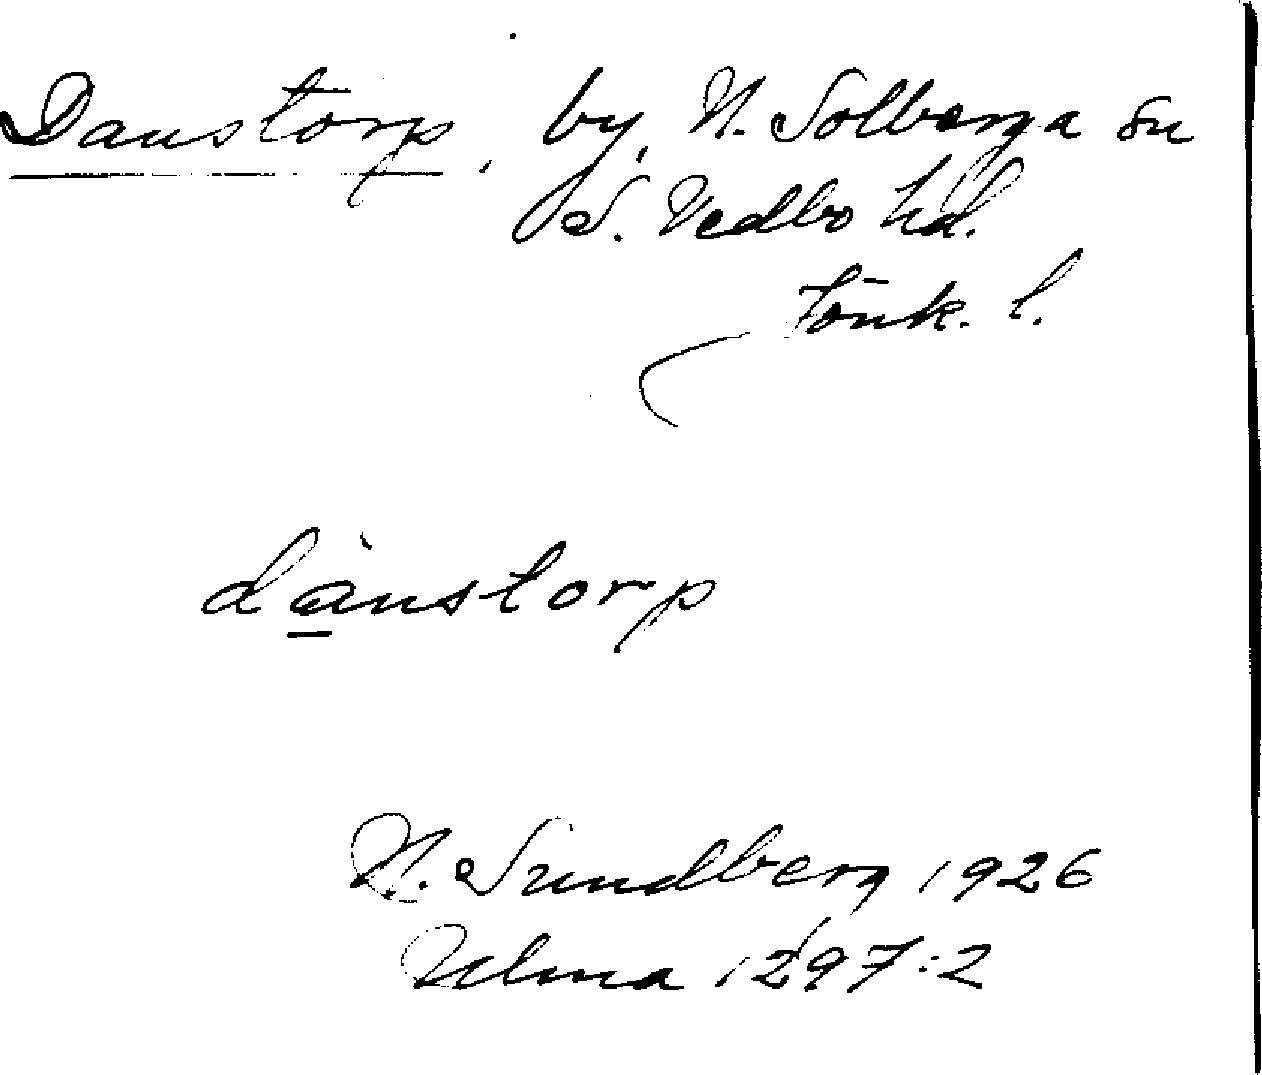 Danstorp, by, N. Solberga sn
S. Vedbo hd.
Jönk. l.
dànstorp
H. Sundberg 1926
Ulma 1297:2